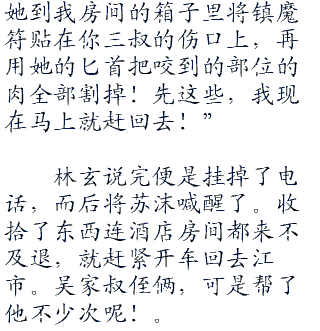 她到我房间的箱子里将镇魔
符贴在你三叔的伤口上，再
用她的匕首把咬到的部位的
肉全部割掉！先这些，我现
在马上就赶回去！”
林玄说完便是挂掉了电
话，而后将苏沫喊醒了。收
拾了东西连酒店房间都来不
及退，就赶紧开车回去江
市。吴家叔侄俩，可是帮了
他不少次呢！。